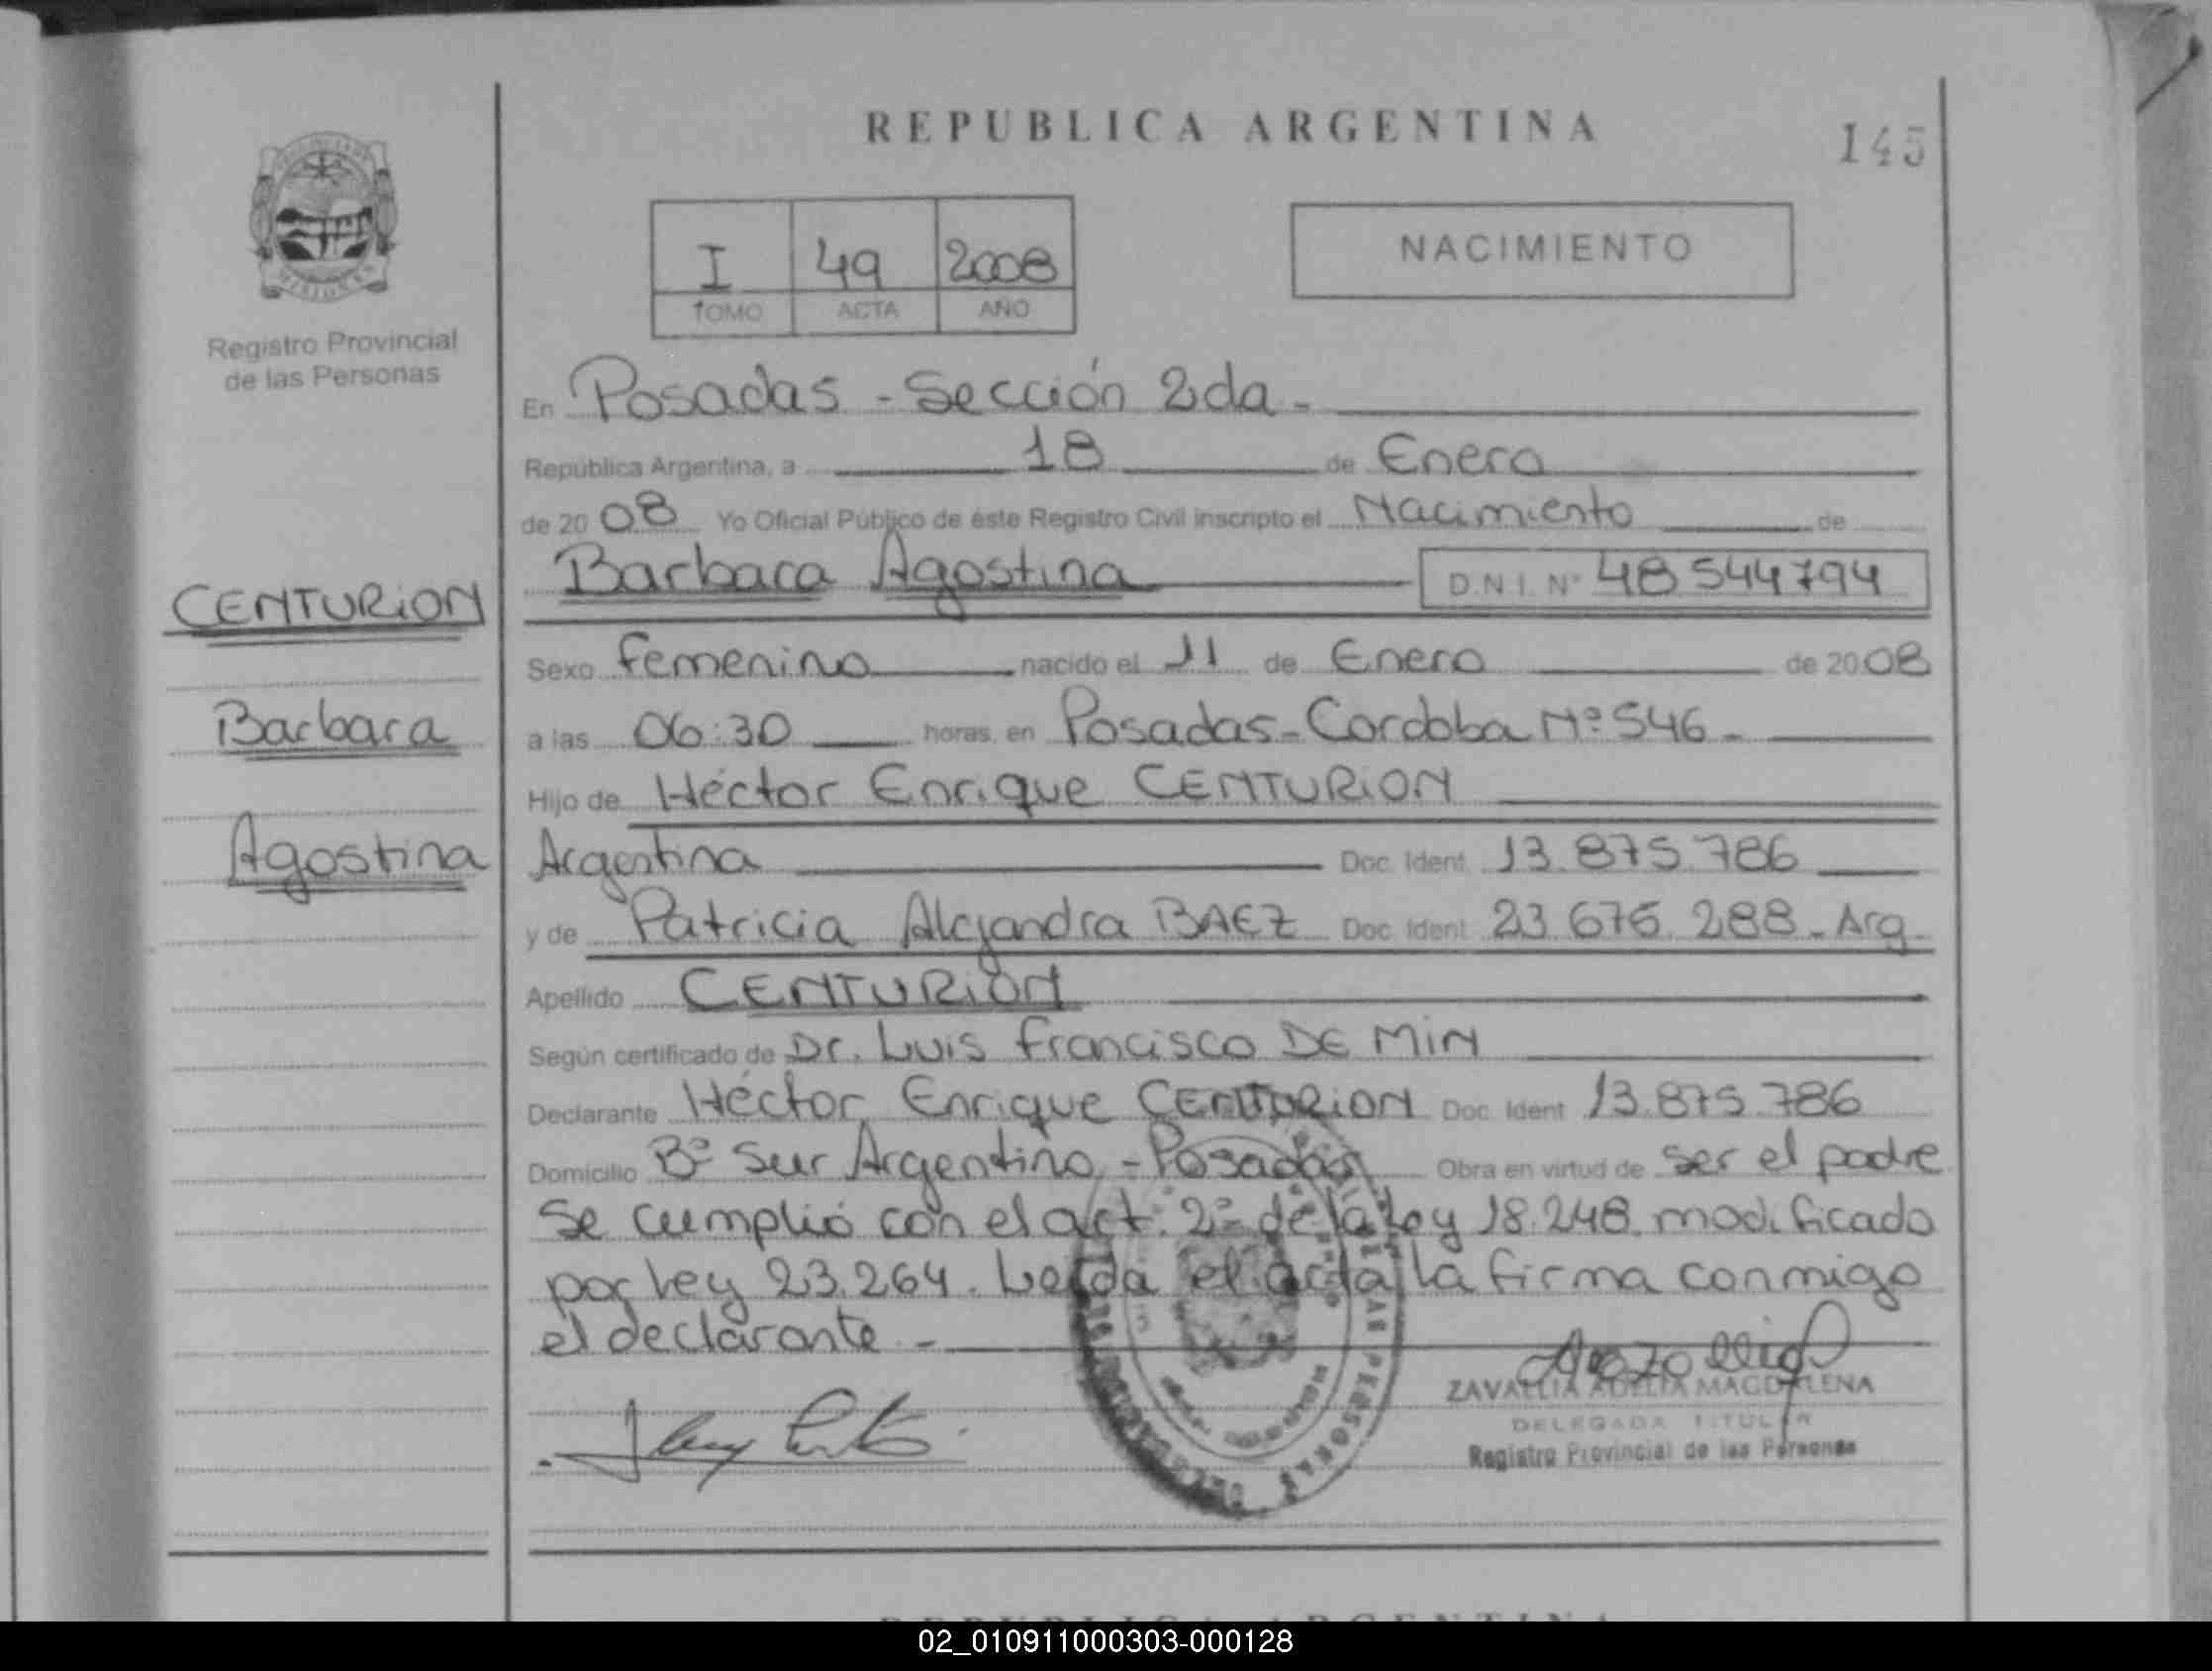 REPUBLICA ARGENTINA
145
I 49 2008
TOMO ACTA AÑO
NACIMIENTO
Registro Provincial
de las Personas
CENTURION
Barbara
Agostina
En Posadas - Sección 2da -
República Argentina, a 18 de Enero
de 2008 Yo Oficial Público de éste Registro Civil inscripto el Nacimiento de
Barbara Agostina D.N.I. N° 48 544794
Sexo Femenino nacido el 11 de Enero de 2008
a las 06:30 horas, en Posadas - Cordoba Nº 546 -
Hijo de Héctor Enrique CENTURION
Argentina Doc. Ident. 13.875.786
y de Patricia Alejandra BAEZ Doc. Ident. 23.676.288 - Arg.
Apellido CENTURION
Según certificado de Dr. Luis Francisco DE MIN
Declarante Héctor Enrique CENTURION Doc. Ident 13.875.786
Domicilio Bº Sur Argentino - Posadas Obra en virtud de ser el padre
Se cumplió con el art. 2º de la Ley 18.248. modificado
por Ley 23.264. Leida el acta, la firma conmigo
el declarante -
ZAVALLIA ADELIA MAGDALENA
DELEGADA TITULAR
Registro Provincial de las Personas
02_010911000303-000128